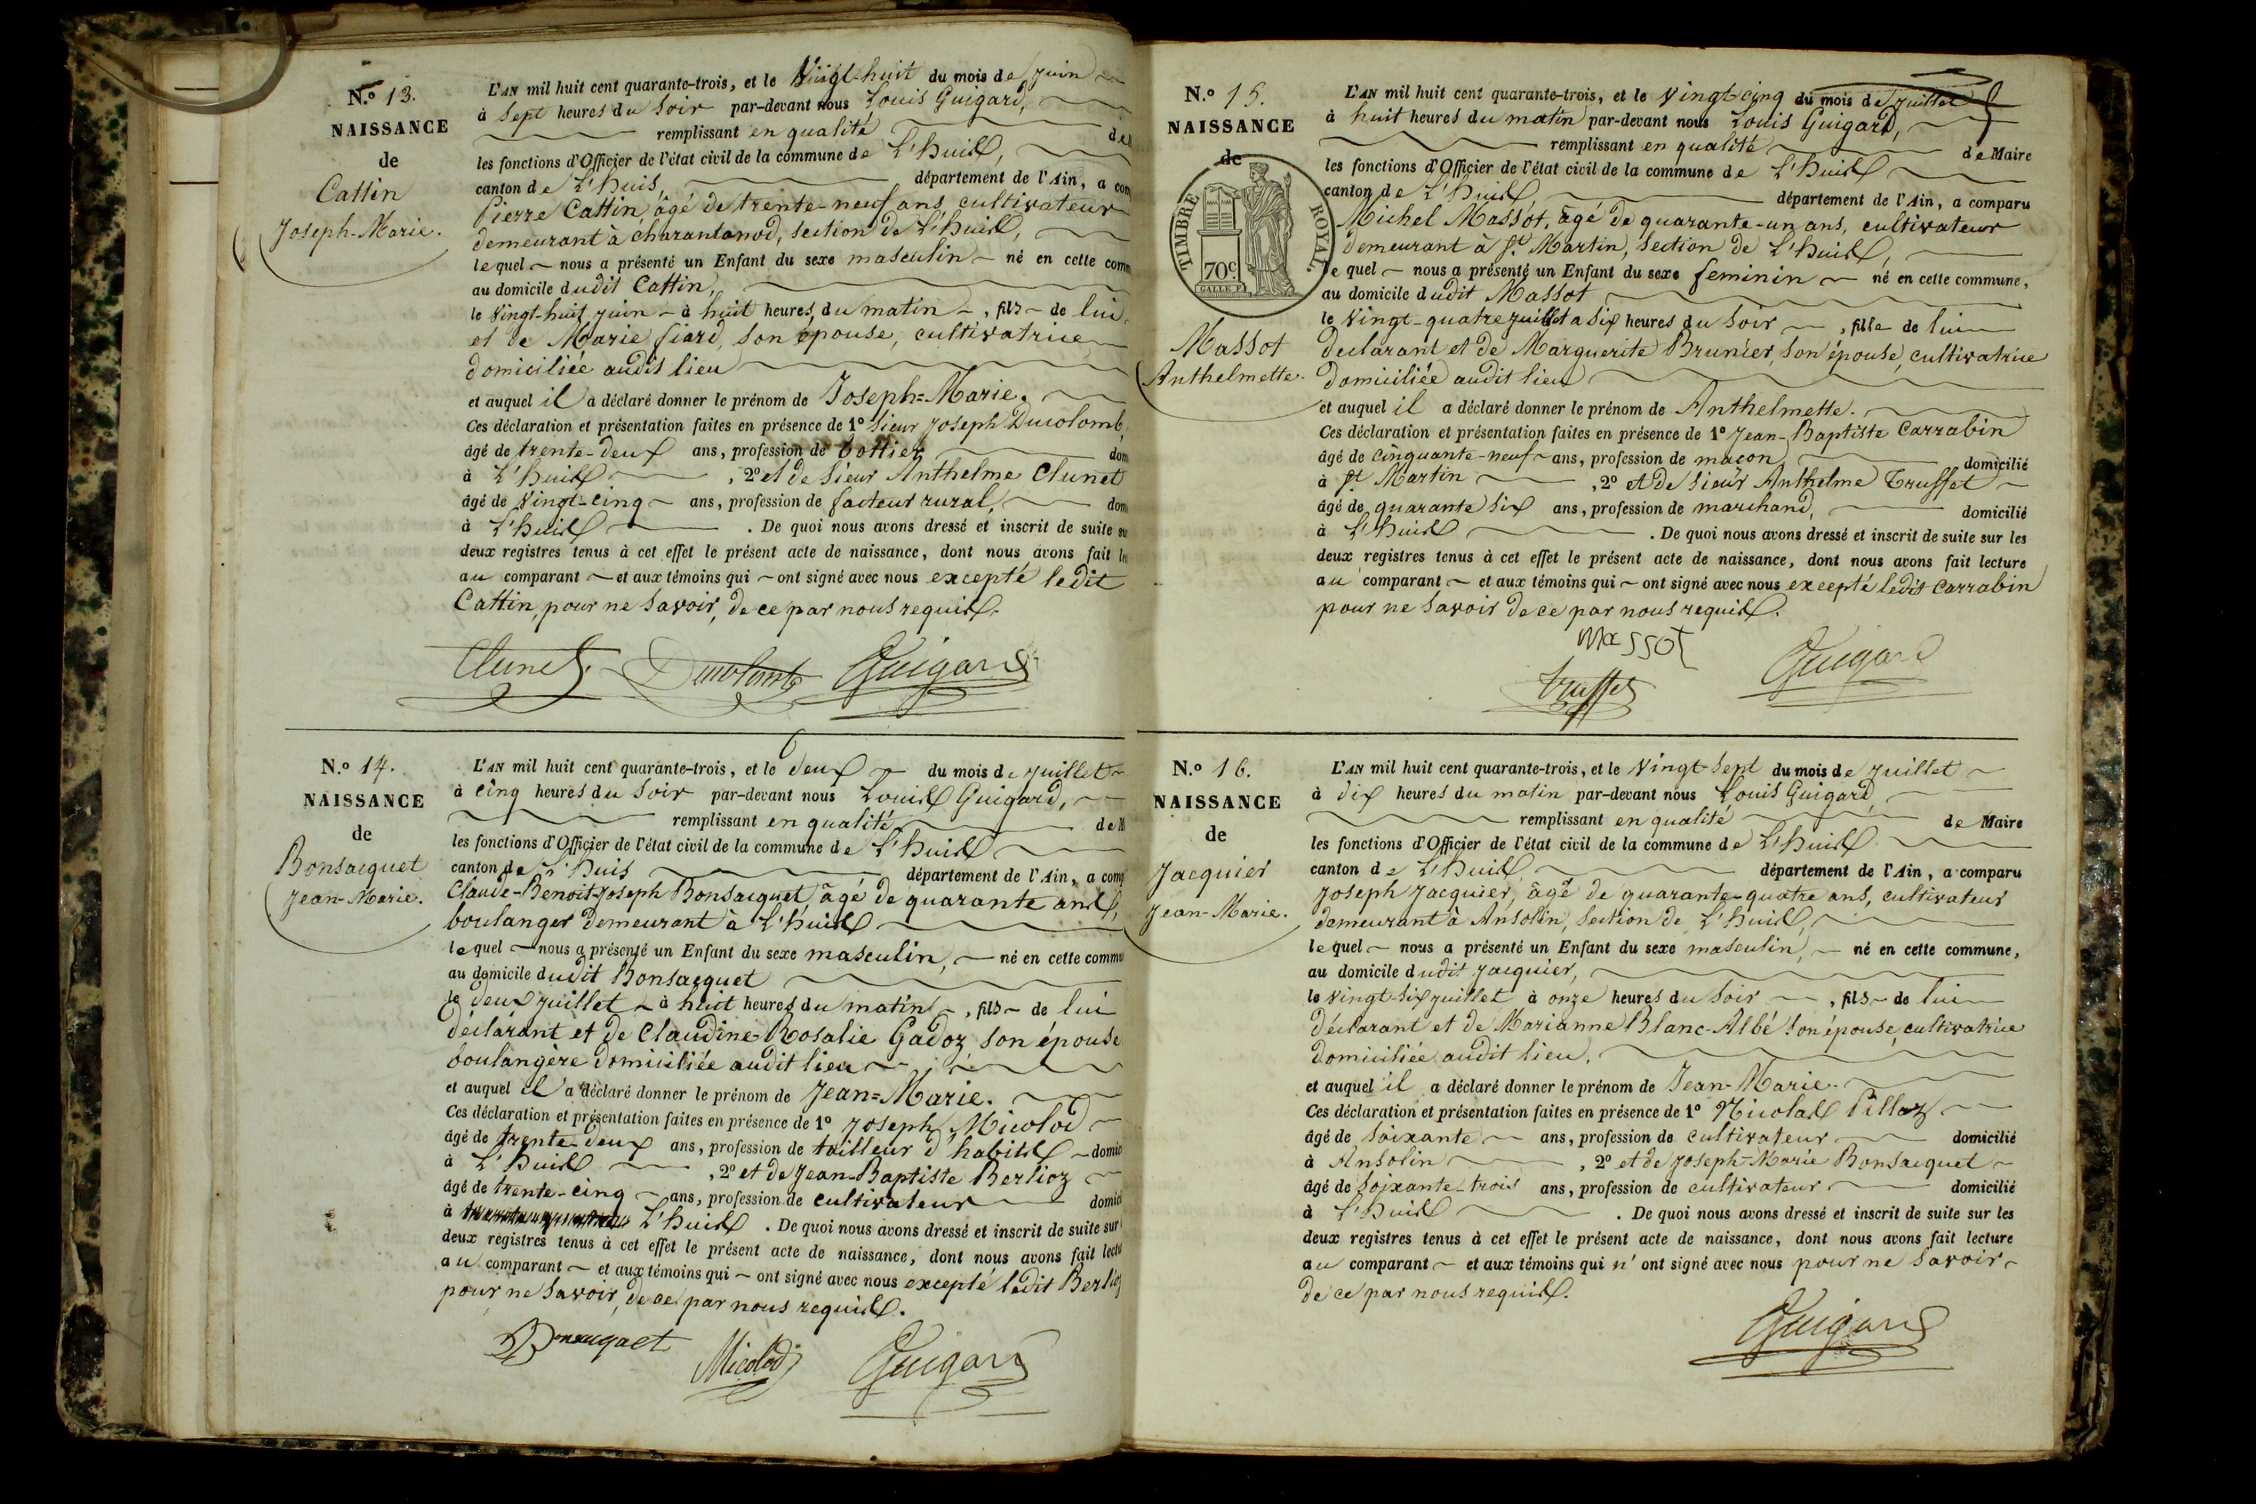 N.º 13.
NAISSANCE
de
Cattin
Joseph-Marie.
L'AN mil huit cent quarante-trois, et le Vingt-huit du mois de Juin
à Sept heures du Soir par-devant nous Louis Guigard,
remplissant en qualité de
les fonctions d'Officier de l'état civil de la commune de L'huis,
canton de L'huis, département de l'Ain, a com
Pierre Cattin, âgé de trente-neuf ans, cultivateur
demeurant à charantonod, section de L'huis,
lequel nous a présenté un Enfant du sexe masculin né en cette comm
au domicile dudit Cattin,
le Vingt-huit juin à huit heures du matin, fils de lui
et de Marie fiard, son épouse, cultivatrice
domiciliée audit lieu
et auquel il a déclaré donner le prénom de Joseph=Marie.
Ces déclaration et présentation faites en présence de 1º Sieur Joseph Ducolomb,
âgé de trente-deux ans, profession de bottier dom
à L'huis, 2º et de Sieur Anthelme Clunet
âgé de Vingt-cinq ans, profession de facteur rural, dom
à L'huis. De quoi nous avons dressé et inscrit de suite su
deux registres tenus à cet effet le présent acte de naissance, dont nous avons fait le
au comparant et aux témoins qui ont signé avec nous excepté ledit
Cattin, pour ne Savoir, de ce par nous requis.
Clunet Ducolomb Guigard
N.º 14.
NAISSANCE
de
Bonsacquet
Jean-Marie.
L'AN mil huit cent quarante-trois, et le deux du mois de Juillet
à cinq heures du Soir par-devant nous Louis Guigard,
remplissant en qualité de M
les fonctions d'Officier de l'état civil de la commune de L'huis
canton de L'huis département de l'Ain, a comp
Claude-Benoit-Joseph Bonsacquet, âgé de quarante ans,
boulanger demeurant à L'huis
lequel nous a présenté un Enfant du sexe masculin, né en cette commu
au domicile dudit Bonsacquet
le deux juillet à huit heures du matin, fils de lui
déclarant et de Claudine-Rosalie Gadoz son épouse
boulangère domiciliée audit lieu
et auquel il a déclaré donner le prénom de Jean=Marie.
Ces déclaration et présentation faites en présence de 1º Joseph Micolod
âgé de trente-deux ans, profession de tailleur d'habits domic
à L'huis, 2º et de Jean-Baptiste Berlioz
âgé de trente-cinq ans, profession de cultivateur domici
à L'huis. De quoi nous avons dressé et inscrit de suite sur
deux registres tenus à cet effet le présent acte de naissance, dont nous avons fait lectu
au comparant et aux témoins qui ont signé avec nous excepté ledit Berlioz
pour ne Savoir, de ce par nous requis.
Bonsacquet Micolod Guigard
N.º 15.
NAISSANCE
de
TIMBRE ROYAL.
70c.
Massot
Anthelmette.
L'AN mil huit cent quarante-trois, et le Vingt-cinq du mois de Juillet
à huit heures du matin par-devant nous Louis Guigard,
remplissant en qualité de Maire
les fonctions d'Officier de l'état civil de la commune de L'huis
canton de L'huis département de l'Ain, a comparu
Michel Massot, âgé de quarante-un ans, cultivateur
demeurant à St Martin, section de L'huis,
lequel nous a présenté un Enfant du sexe feminin né en cette commune,
au domicile dudit Massot
le Vingt-quatre juillet à six heures du Soir, fille de lui
declarant et de Marguerite Brunier, son épouse, cultivatrice
domiciliée audit lieu
et auquel il a déclaré donner le prénom de Anthelmette.
Ces déclaration et présentation faites en présence de 1º Jean-Baptiste Carrabin
âgé de cinquante-neuf ans, profession de maçon domicilié
à St Martin, 2º et de Sieur Anthelme Truffet
âgé de quarante six ans, profession de marchand, domicilié
à L'huis. De quoi nous avons dressé et inscrit de suite sur les
deux registres tenus à cet effet le présent acte de naissance, dont nous avons fait lecture
au comparant et aux témoins qui ont signé avec nous excepté ledit Carrabin
pour ne Savoir de ce par nous requis.
Massot
Truffet Guigard
N.º 16.
NAISSANCE
de
Jacquier
Jean-Marie.
L'AN mil huit cent quarante-trois, et le Vingt Sept du mois de Juillet
à dix heures du matin par-devant nous Louis Guigard,
remplissant en qualité de Maire
les fonctions d'Officier de l'état civil de la commune de L'huis
canton de L'huis, département de l'Ain, a comparu
Joseph Jacquier, âgé de quarante-quatre ans, cultivateur
demeurant à Ansolin, Section de L'huis,
lequel nous a présenté un Enfant du sexe masculin, né en cette commune,
au domicile dudit Jacquier,
le Vingt-six juillet à onze heures du Soir, fils de lui
déclarant et de Marianne Blanc-Albé son épouse, cultivatrice
domiciliée audit lieu.
et auquel il a déclaré donner le prénom de Jean-Marie.
Ces déclaration et présentation faites en présence de 1º Nicolas Pillaz
âgé de Soixante ans, profession de cultivateur domicilié
à Ansolin, 2º et de Joseph-Marie Bonsacquet
âgé de Soixante-trois ans, profession de cultivateur domicilié
à L'huis. De quoi nous avons dressé et inscrit de suite sur les
deux registres tenus à cet effet le présent acte de naissance, dont nous avons fait lecture
au comparant et aux témoins qui n'ont signé avec nous pour ne Savoir
de ce par nous requis.
Guigard